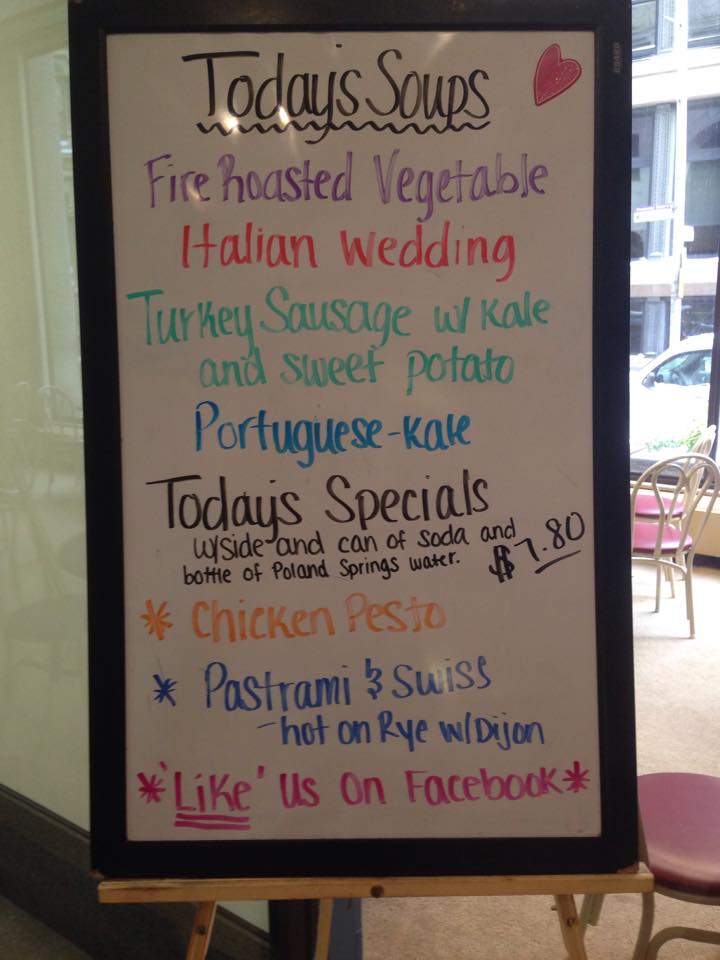 Today's Soups
Fire Roasted Vegetable
Italian Wedding
Turkey Sausage w/ Kale
and sweet potato
Portuguese-Kale
Today's Specials
w/side and can of soda and
bottle of Poland Springs water. $7.80
* Chicken Pesto
* Pastrami & Swiss
-hot on Rye w/Dijon
*'Like' Us On Facebook*